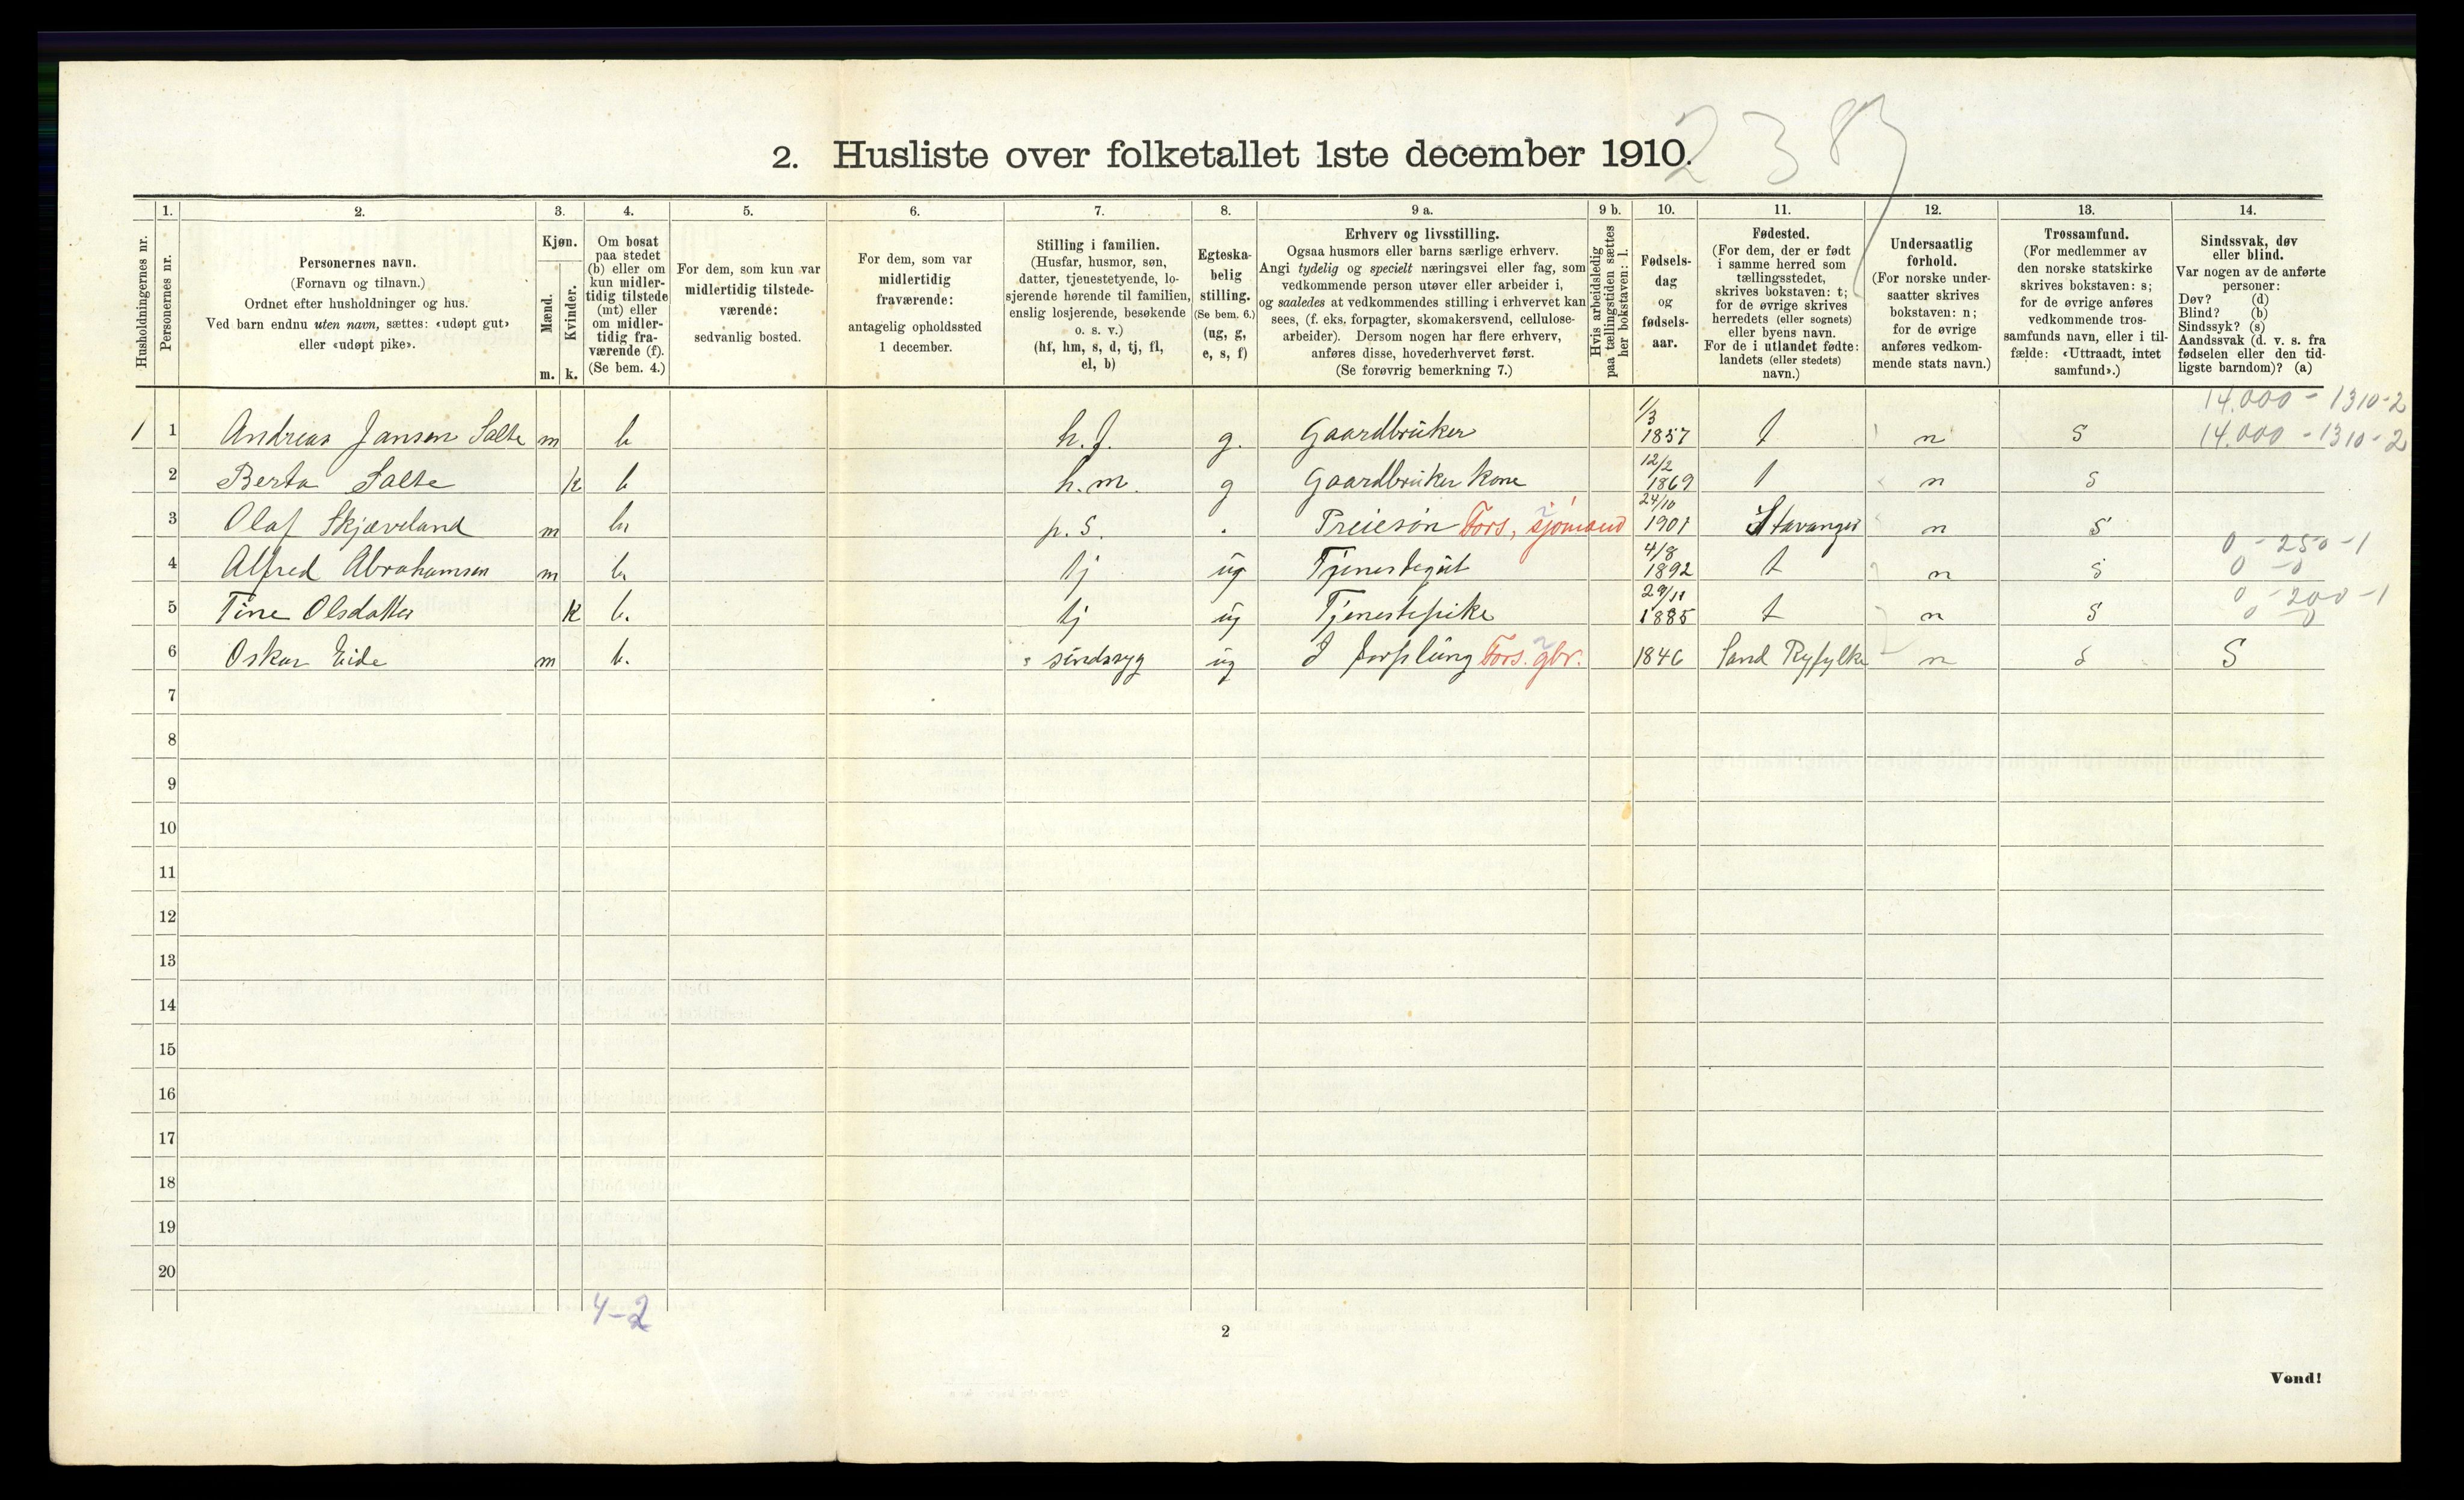 2383
2. Husliste over folketallet 1ste december 1910.
Husholdningernes nr.
1.
Personernes nr.
2.
Personernes navn.
(Fornavn og tilnavn.)
Ordnet efter husholdninger og hus.
Ved barn endnu uten navn, sættes: «udøpt gut»
eller «udøpt pike».
3.
Kjøn.
Mænd.
Kvinder.
m. k.
4.
Om bosat
paa stedet
(b) eller om
kun midler-
tidig tilstede
(mt) eller
om midler-
tidig fra-
værende (f).
(Se bem. 4.)
5.
For dem, som kun var
midlertidig tilstede-
værende:
sedvanlig bosted.
6.
For dem, som var
midlertidig
fraværende:
antagelig opholdssted
1 december.
7.
Stilling i familien.
(Husfar, husmor, søn,
datter, tjenestetyende, lo-
sjerende hørende til familien,
enslig losjerende, besøkende
o. s. v.)
(hf, hm, s, d, tj, fl,
el, b)
8.
Egteska-
belig
stilling.
(Se bem. 6.)
(ug, g,
e, s, f)
9 a.
Erhverv og livsstilling.
Ogsaa husmors eller barns særlige erhverv.
Angi tydelig og specielt næringsvei eller fag, som
vedkommende person utøver eller arbeider i,
og saaledes at vedkommendes stilling i erhvervet kan
sees, (f. eks. forpagter, skomakersvend, cellulose-
arbeider). Dersom nogen har flere erhverv,
anføres disse, hovederhvervet først.
(Se forøvrig bemerkning 7.)
9 b.
Hvis arbeidsledig
paa tællingstiden sættes
her bokstaven: l.
10.
Fødsels-
dag
og
fødsels-
aar.
11.
Fødested.
(For dem, der er født
i samme herred som
tællingsstedet,
skrives bokstaven: t;
for de øvrige skrives
herredets (eller sognets)
eller byens navn.
For de i utlandet fødte:
landets (eller stedets)
navn.)
12.
Undersaatlig
forhold.
(For norske under-
saatter skrives
bokstaven: n;
for de øvrige
anføres vedkom-
mende stats navn.)
13.
Trossamfund.
(For medlemmer av
den norske statskirke
skrives bokstaven: s;
for de øvrige anføres
vedkommende tros-
samfunds navn, eller i til-
fælde: «Uttraadt, intet
samfund».)
14.
Sindssvak, døv
eller blind.
Var nogen av de anførte
personer:
Døv? (d)
Blind? (b)
Sindssyk? (s)
Aandssvak (d. v. s. fra
fødselen eller den tid-
ligste barndom)? (a)
14.000 - 1310-2
1 1 Andreas Jansen Salte m b h.f. g. Gaardbrüker 1/3 1857 t n S 14.000 - 1310-2
2 Berta Salte k b h.m. g Gaardbrüker kone 12/2 1869 t n s
3 Olaf Skjæveland m b p.s. . Preiesön Fors, sjömand 24/10 1901 Stavanger n S
0 - 250 -1
4 Alfred Abrahamsen m b. tj üg Tjenestegüt 4/8 1892 t n s 0 - 0
0 - 200 -1
5 Tine Olsdatter k b. tj üg Tjenestepike 29/11 1885 t n S 0 - 0
6 Oskar Eide m b. sindssyg üg I forplüng Fors. gbr. 1846 Sand Ryfylke n s S
7
8
9
10
11
12
13
14
15
16
17
18
19
20
4-2
2
Vend!